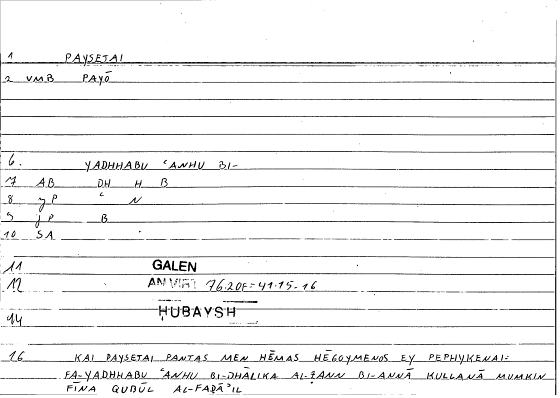 1 PAYSETAI
2 VMB PAYŌ
6. YADHHABU ʿANHU BI-
7 AB DH H B
8 yP ʿ N
9 jP B
10 SA
11 GALEN
12 AN VIRT 76.20F = 41.15-16
14 HUBAYSH
16 KAI PAYSETAI PANTAS MEN HĒMAS HĒGOYMENOS EY PEPHYKENAI=
FA-YADHHABU ʿANHU BI-DHĀLIKA AL-ẒANN BI-ANNĀ KULLANĀ MUMKIN
FĪNA QUBŪL AL-FAḌĀʾIL